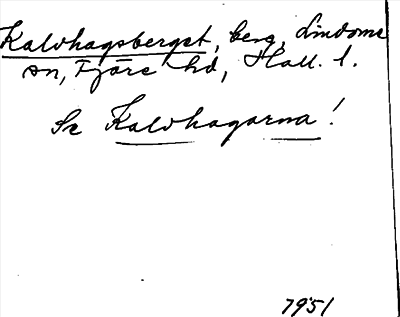 Kalvhagsberget, berg, Lindome
sn, Fjäre hd, Hall. l.
Se Kalvhagarna!
1951